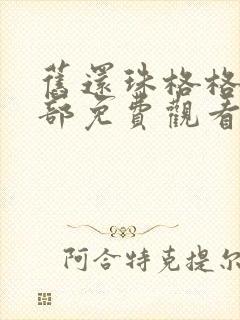 舊還珠格格
部免費觀看
阿合特克提尔